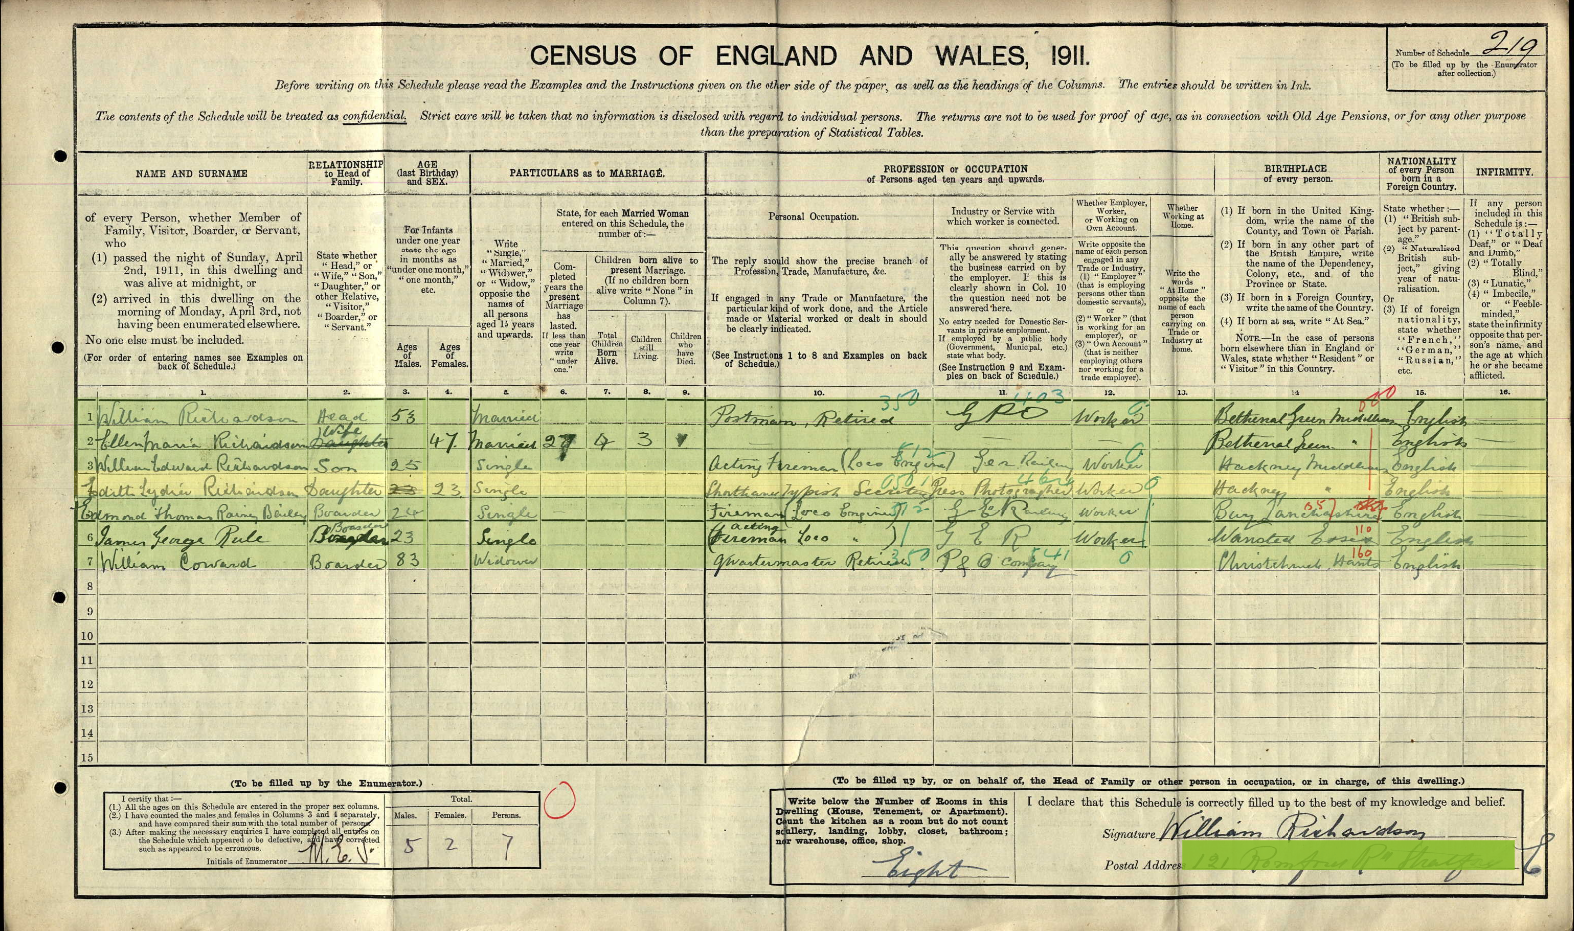 CENSUS OF ENGLAND AND WALES, 1911.
Number of Schedule 219
(To be filled up by the Enumerator after collection.)
Before writing on this Schedule please read the Examples and the Instructions given on the other side of the paper, as well as the headings of the Columns. The entries should be written in Ink.
The contents of the Schedule will be treated as confidential. Strict care will be taken that no information is disclosed with regard to individual persons. The returns are not to be used for proof of age, as in connection with Old Age Pensions, or for any other purpose
than the preparation of Statistical Tables.
NAME AND SURNAME
RELATIONSHIP to Head of Family.
AGE (last Birthday) and SEX.
PARTICULARS as to MARRIAGE.
PROFESSION or OCCUPATION of Persons aged ten years and upwards.
BIRTHPLACE of every person.
NATIONALITY of every Person born in a Foreign Country.
INFIRMITY.
of every Person, whether Member of Family, Visitor, Boarder, or Servant, who
(1) passed the night of Sunday, April 2nd, 1911, in this dwelling and was alive at midnight, or
(2) arrived in this dwelling on the morning of Monday, April 3rd, not having been enumerated elsewhere.
No one else must be included.
(For order of entering names see Examples on back of Schedule.)
State whether "Head," or "Wife," "Son," "Daughter," or other Relative, "Visitor," "Boarder," or "Servant."
For Infants under one year state the age in months as "under one month," "one month," etc.
Ages of Males.
Ages of Females.
Write "Single," "Married," "Widower," or "Widow," opposite the names of all persons aged 15 years and upwards.
State, for each Married Woman entered on this Schedule, the number of:—
Completed years the present Marriage has lasted. If less than one year write "under one."
Children born alive to present Marriage. (If no children born alive write "None" in Column 7).
Total Children Born Alive.
Children still Living.
Children who have Died.
Personal Occupation.
The reply should show the precise branch of Profession, Trade, Manufacture, &c.
If engaged in any Trade or Manufacture, the particular kind of work done, and the Article made or Material worked or dealt in should be clearly indicated.
(See Instructions 1 to 8 and Examples on back of Schedule.)
Industry or Service with which worker is connected.
This question should generally be answered by stating the business carried on by the employer. If this is clearly shown in Col. 10 the question need not be answered here.
No entry needed for Domestic Servants in private employment. If employed by a public body (Government, Municipal, etc.) state what body.
(See Instruction 9 and Examples on back of Schedule.)
Whether Employer, Worker, or Working on Own Account.
Write opposite the name of each person engaged in any Trade or Industry, (1) "Employer" (that is employing persons other than domestic servants), or (2) "Worker" (that is working for an employer), or (3) "Own Account" (that is neither employing others nor working for a trade employer).
Whether Working at Home.
Write the words "At Home" opposite the name of each person carrying on Trade or Industry at home.
(1) If born in the United Kingdom, write the name of the County, and Town or Parish.
(2) If born in any other part of the British Empire, write the name of the Dependency, Colony, etc., and of the Province or State.
(3) If born in a Foreign Country, write the name of the Country.
(4) If born at sea, write "At Sea."
NOTE.—In the case of persons born elsewhere than in England or Wales, state whether "Resident" or "Visitor" in this Country.
State whether:—
(1) "British subject by parentage."
(2) "Naturalised British subject," giving year of naturalisation.
Or
(3) If of foreign nationality, state whether "French," "German," "Russian," etc.
If any person included in this Schedule is:—
(1) "Totally Deaf," or "Deaf and Dumb,"
(2) "Totally Blind,"
(3) "Lunatic,"
(4) "Imbecile," or "Feeble-minded,"
state the infirmity opposite that person's name, and the age at which he or she became afflicted.
1. 2. 3. 4. 5. 6. 7. 8. 9. 10. 11. 12. 13. 14 15. 16.
1 William Richardson Head 53 Married Postman, Retired 350 GPO 403 Worker 0 Bethnal Green Middlesex 000 English
2 Ellen Maria Richardson Wife Daughter 47. Married 27 4 3 Bethnal Green " English
3 William Edward Richardson Son 25 Single Acting Fireman (Loco Engine) 512 Ger Railway Worker 0 Hackney Middlesex English
4 Edith Lydia Richardson Daughter 23 23 Single Shorthand Typist Secretary Press Photographer Worker 0 Hackney " English
Edmond Thomas Boarder 24 Single Fireman Loco Engine 512 G E Railway Worker Bury Lancashire English
6 James George Rule Boarder Boarder 23 Single (Acting Fireman Loco " ) G E R Worker Wansted Essex 110 English
7 William Coward Boarder 83 Widower Quartermaster Retired 350 P & O Company 541 0 Christchurch Hants 160 English
8
9
10
11
12
13
14
15
(To be filled up by the Enumerator.)
I certify that:—
(1.) All the ages on this Schedule are entered in the proper sex columns.
(2.) I have counted the males and females in Columns 3 and 4 separately, and have compared their sum with the total number of persons.
(3.) After making the necessary enquiries I have completed all entries on the Schedule which appeared to be defective, and have corrected such as appeared to be erroneous.
Initials of Enumerator
Total.
Males. Females. Persons.
5 2 7
(To be filled up by, or on behalf of, the Head of Family or other person in occupation, or in charge, of this dwelling.)
Write below the Number of Rooms in this Dwelling (House, Tenement, or Apartment). Count the kitchen as a room but do not count scullery, landing, lobby, closet, bathroom; nor warehouse, office, shop.
Eight
I declare that this Schedule is correctly filled up to the best of my knowledge and belief.
Signature William Richardson
Postal Address 121 Romford Rd Stratford E